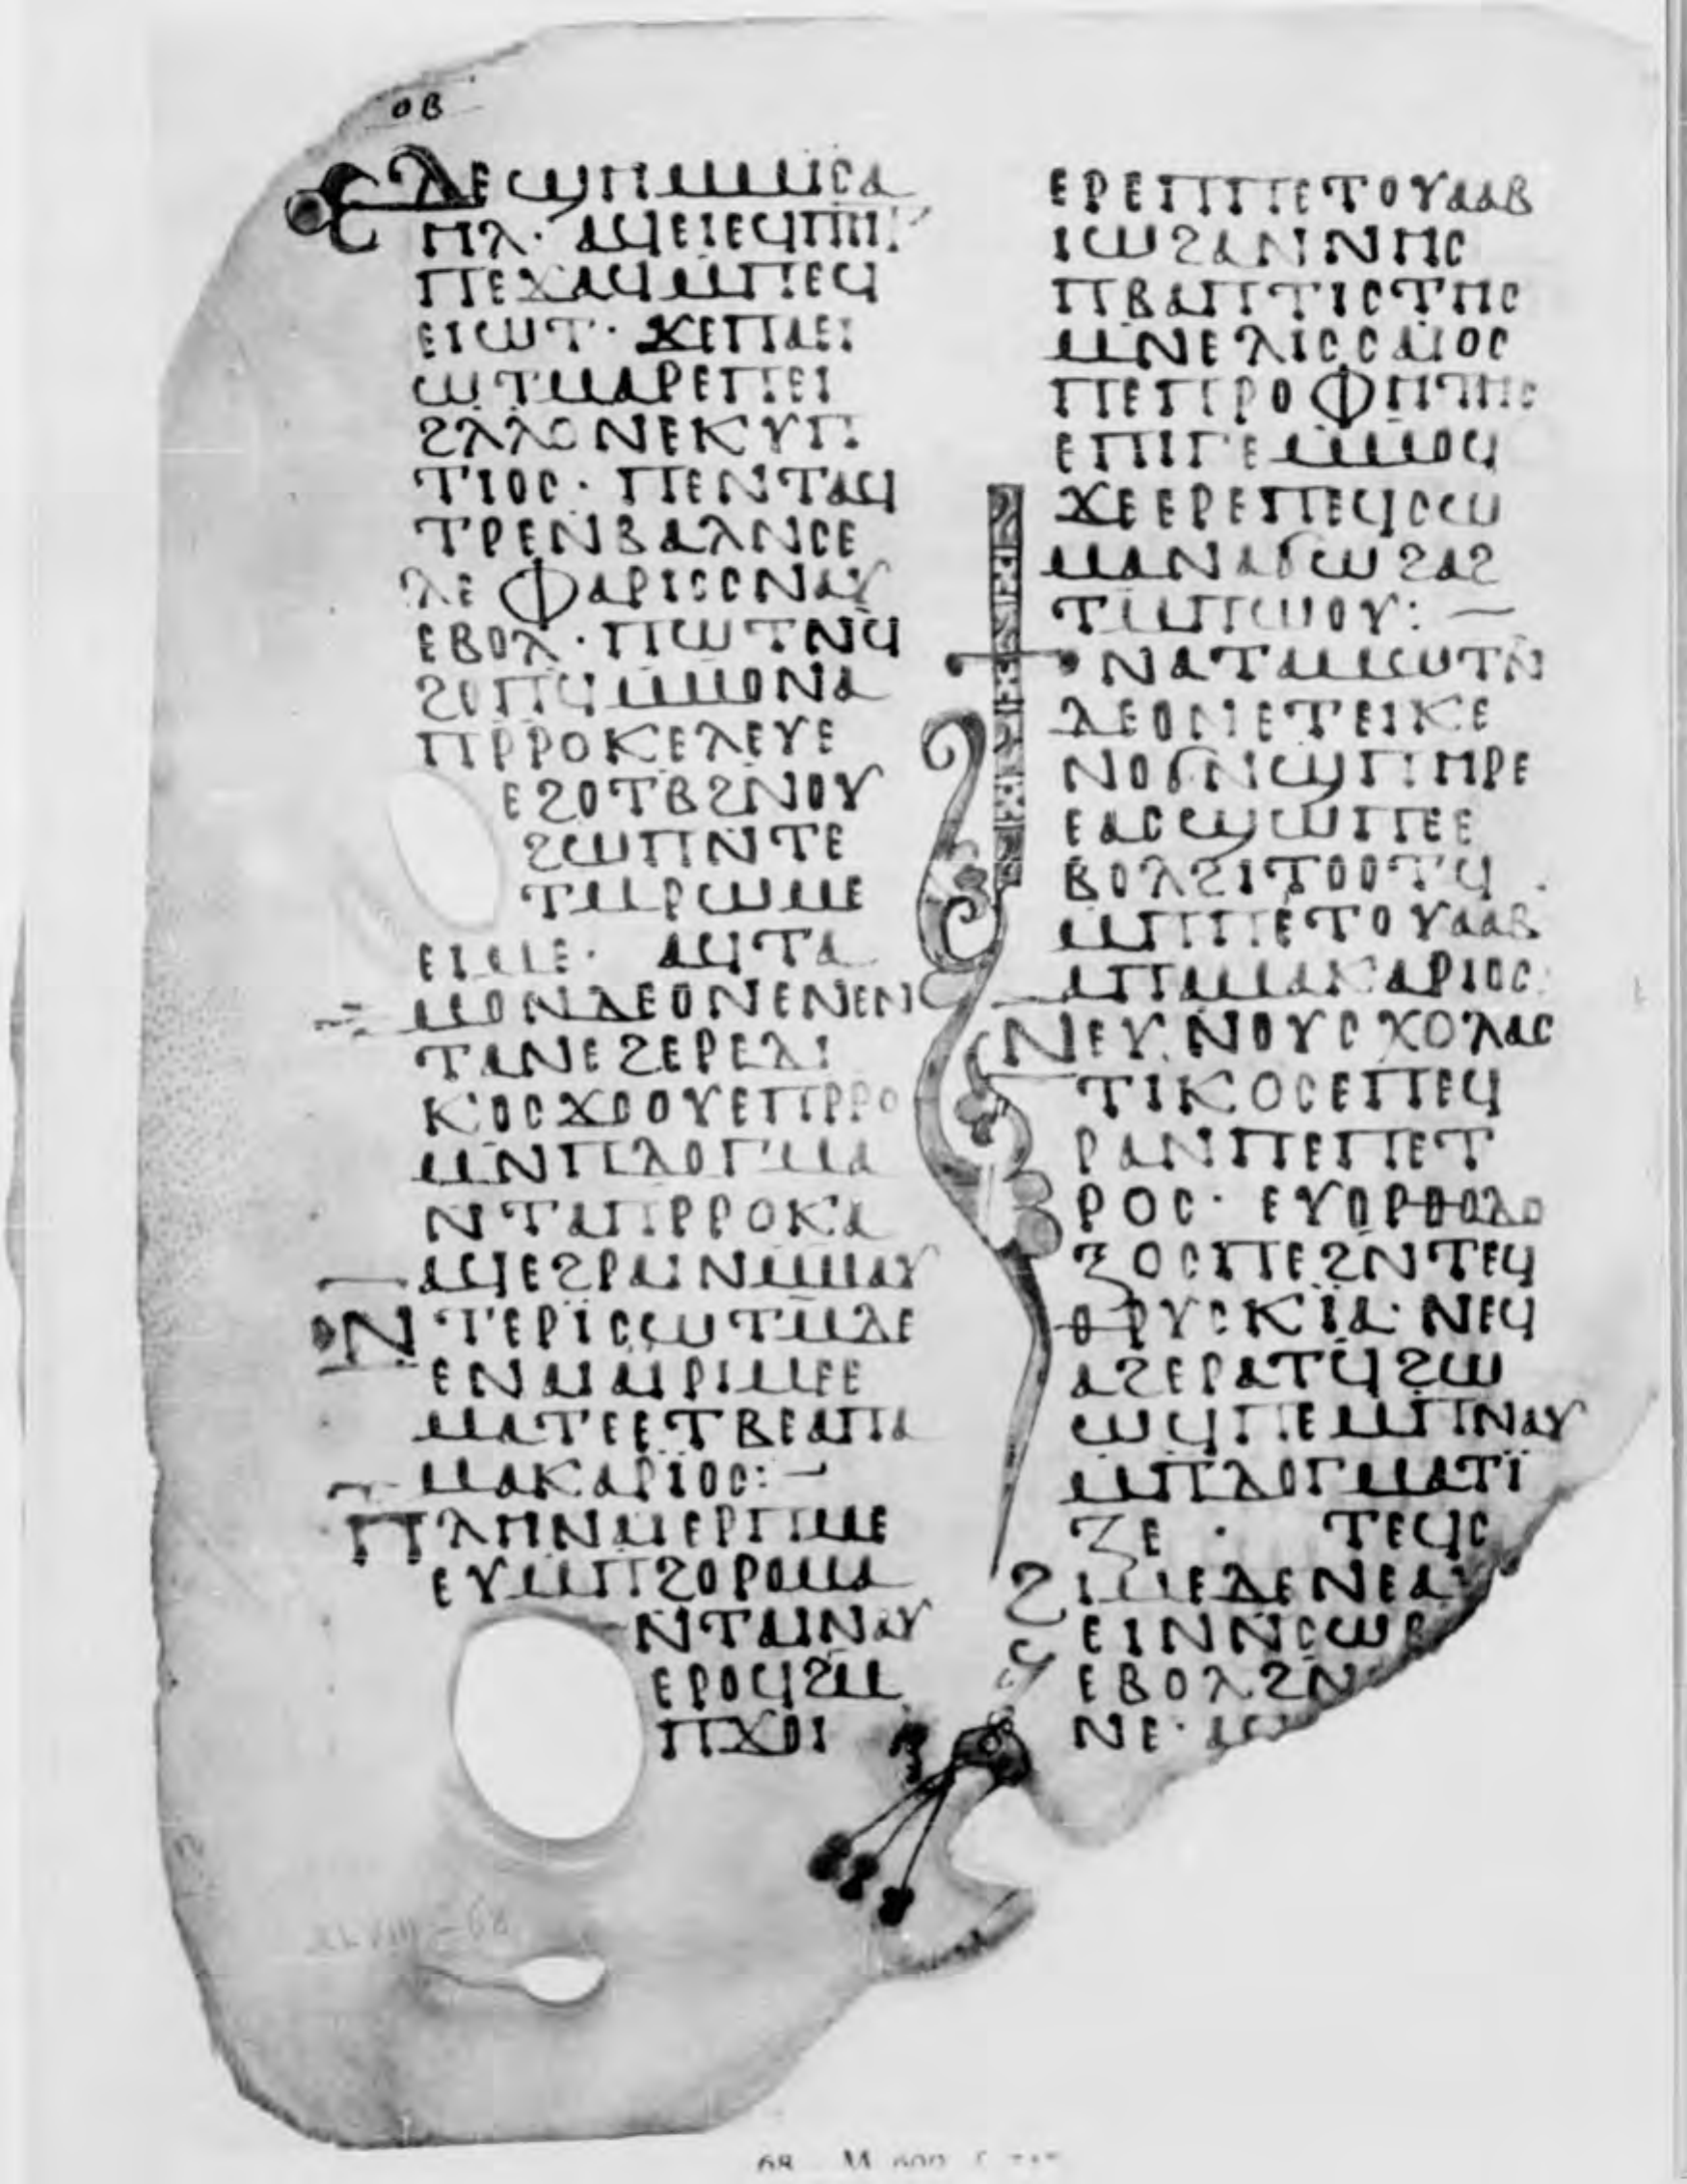 ⲟⲃ
ⲗⲉϣⲏⲙⲙⲙⲓⲥⲁ
ⲏⲗ· ⲁϥⲉⲓⲉϥⲡⲏⲓ
ⲡⲉϫⲁϥⲙⲡⲉϥ
ⲉⲓⲱⲧ· ϫⲉⲡⲁⲉⲓ
ⲱⲧⲙⲁⲣⲉⲡⲉⲓ
ϩⲗⲗⲟⲛⲉⲕⲩⲡ
ⲧⲓⲟⲥ· ⲡⲉⲛⲧⲁϥ
ⲧⲣⲉⲛⲃⲁⲗⲛⲥⲉ
ⲗⲉⲫⲁⲣⲓⲥⲥⲛⲁⲩ
ⲉⲃⲟⲗ· ⲡⲱⲧⲛϥ
ϩⲟⲡϥⲙⲙⲟⲛⲁ
ⲡⲣⲣⲟⲕⲉⲗⲉⲩⲉ
ⲉϩⲟⲧⲃϩⲛⲟⲩ
ϩⲱⲡⲛⲧⲉ
ⲧⲙⲣⲱⲙⲉ
ⲉⲓⲙⲉ· ⲁϥⲧⲁ
ⲙⲟⲛⲇⲉⲟⲛⲉⲛⲉⲛ
ⲧⲁⲛⲉϩⲉⲣⲉⲇⲓ
ⲕⲟⲥϫⲟⲟⲩⲉⲡⲣⲣⲟ
ⲙⲛⲡⲇⲟⲅⲙⲁ
ⲛⲧⲁⲡⲣⲣⲟⲕⲁ
ⲁϥⲉϩⲣⲁⲓⲛⲙⲙⲁⲩ
ⲛⲧⲉⲣⲓⲥⲱⲧⲙⲇⲉ
ⲉⲛⲁⲓⲁⲓⲣⲓⲙⲉⲉ
ⲙⲁⲧⲉⲉⲧⲃⲉⲁⲡⲁ
ⲙⲁⲕⲁⲣⲓⲟⲥ:—
ⲡⲗⲏⲛⲁⲓⲉⲣⲡⲙⲉ
ⲉⲩⲙⲡϩⲟⲣⲟⲙⲁ
ⲛⲧⲁⲓⲛⲁⲩ
ⲉⲣⲟϥϩⲙ
ⲡϫⲟⲓ
ⲉⲣⲉⲡⲡⲉⲧⲟⲩⲁⲁⲃ
ⲓⲱϩⲁⲛⲛⲏⲥ
ⲡⲃⲁⲡⲧⲓⲥⲧⲏⲥ
ⲙⲛⲉⲗⲓⲥⲥⲁⲓⲟⲥ
ⲡⲉⲡⲣⲟⲫⲏⲧⲏⲥ
ⲉⲡⲓⲅⲉⲙⲙⲟϥ
ϫⲉⲉⲣⲉⲡⲉϥⲥⲱ
ⲙⲁⲛⲁϭⲱϩⲁϩ
ⲧⲙⲡⲱⲟⲩ:—
ⲛⲁⲧⲁⲙⲱⲧⲛ
ⲇⲉⲟⲛⲉⲧⲉⲓⲕⲉ
ⲛⲟϭⲛϣⲡⲏⲣⲉ
ⲉⲁⲥϣⲱⲡⲉⲉ
ⲃⲟⲗϩⲓⲧⲟⲟⲧϥ
ⲙⲡⲡⲉⲧⲟⲩⲁⲁⲃ
ⲁⲡⲁⲙⲁⲕⲁⲣⲓⲟⲥ
ⲛⲉⲩⲛⲟⲩⲥⲭⲟⲗⲁⲥ
ⲧⲓⲕⲟⲥⲉⲡⲉϥ
ⲣⲁⲛⲡⲉⲡⲉⲧ
ⲣⲟⲥ· ⲉⲩⲟⲣⲑⲟⲇⲟ
ⲝⲟⲥⲡⲉϩⲛⲧⲉϥ
ⲑⲣⲩⲥⲕⲓⲁ· ⲛⲉϥ
ⲁϩⲉⲣⲁⲧϥϩⲱ
ⲱϥⲡⲉⲙⲡⲛⲁⲩ
ⲙⲡⲇⲟⲅⲙⲁⲧⲓ
ⲍⲉ· ⲧⲉϥⲥ
ϩⲓⲙⲉⲇⲉⲛⲉⲁⲩ
ⲉⲓⲛⲛⲥⲱ
ⲉⲃⲟⲗϩⲛ
ⲛⲉ·